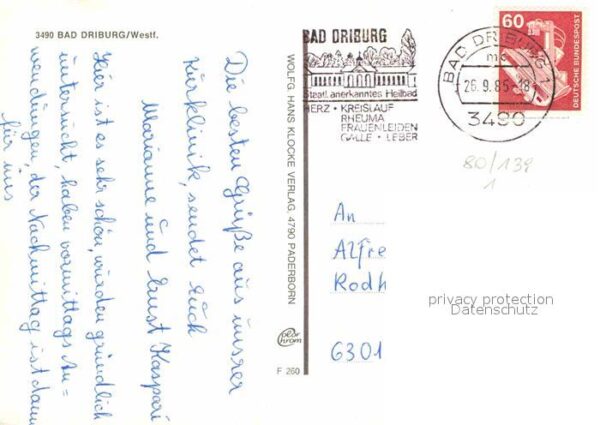 3490 BAD DRIBURG/Westf.
Die besten Grüße aus unsrer
Kurklinik, sendet Euch
Marianne und Ernst Kaspari
Hier ist es sehr schön, wurden gründlich
untersucht, haben vormittags An=
wendungen, der Nachmittag ist dann
für uns
WOLFG. HANS KLOCKE VERLAG, 4790 PADERBORN
Color
chrom
F 260
BAD DRIBURG
Staatl. anerkanntes Heilbad
HERZ • KREISLAUF
RHEUMA
FRAUENLEIDEN
GALLE • LEBER
BAD DRIBURG 1
mc
26.9.85-18
3490
60
DEUTSCHE BUNDESPOST
80/139
1
An
Alfre
Rodh
6301
privacy protection
Datenschutz